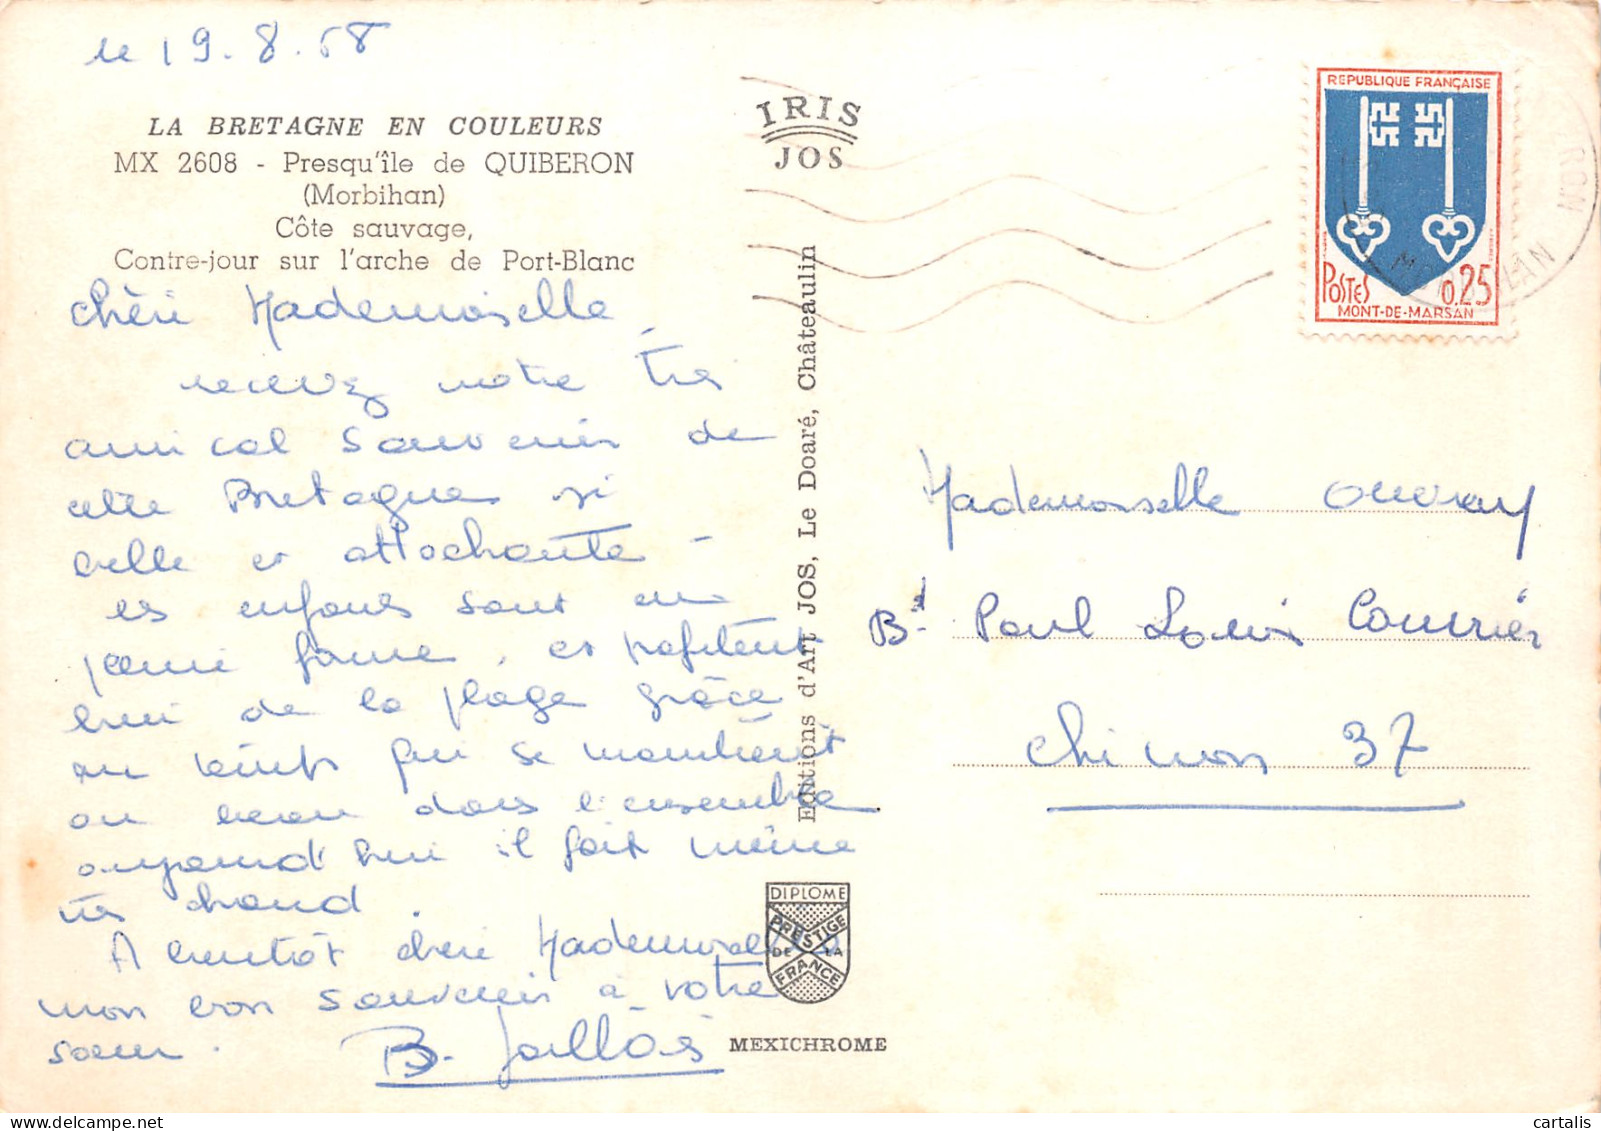 le 19.8.68
LA BRETAGNE EN COULEURS
MX 2608 - Presqu'île de QUIBERON
(Morbihan)
Côte sauvage,
Contre-jour sur l'arche de Port-Blanc
IRIS
JOS
REPUBLIQUE FRANÇAISE
POSTES 0,25
MONT-DE-MARSAN
RON
MORBIHAN
chère Mademoiselle
recevez notre très
amical souvenir de
cette Bretagne si
belle et attachante -
es enfants sont en
pleine forme, et profitent
bien de la plage grâce
au temps qui se maintient
au beau dans l'ensemble
aujourd'hui il fait même
très chaud
A bientôt chère Mademoiselle
mon bon souvenir à votre
soeur.
B. Jallois
Editions d'Art JOS, Le Doaré, Châteaulin
DIPLOME
PRESTIGE
DE LA
FRANCE
MEXICHROME
Mademoiselle Ouvray
Bd Paul Louis Courrier
Chinon 37
cartalis.com